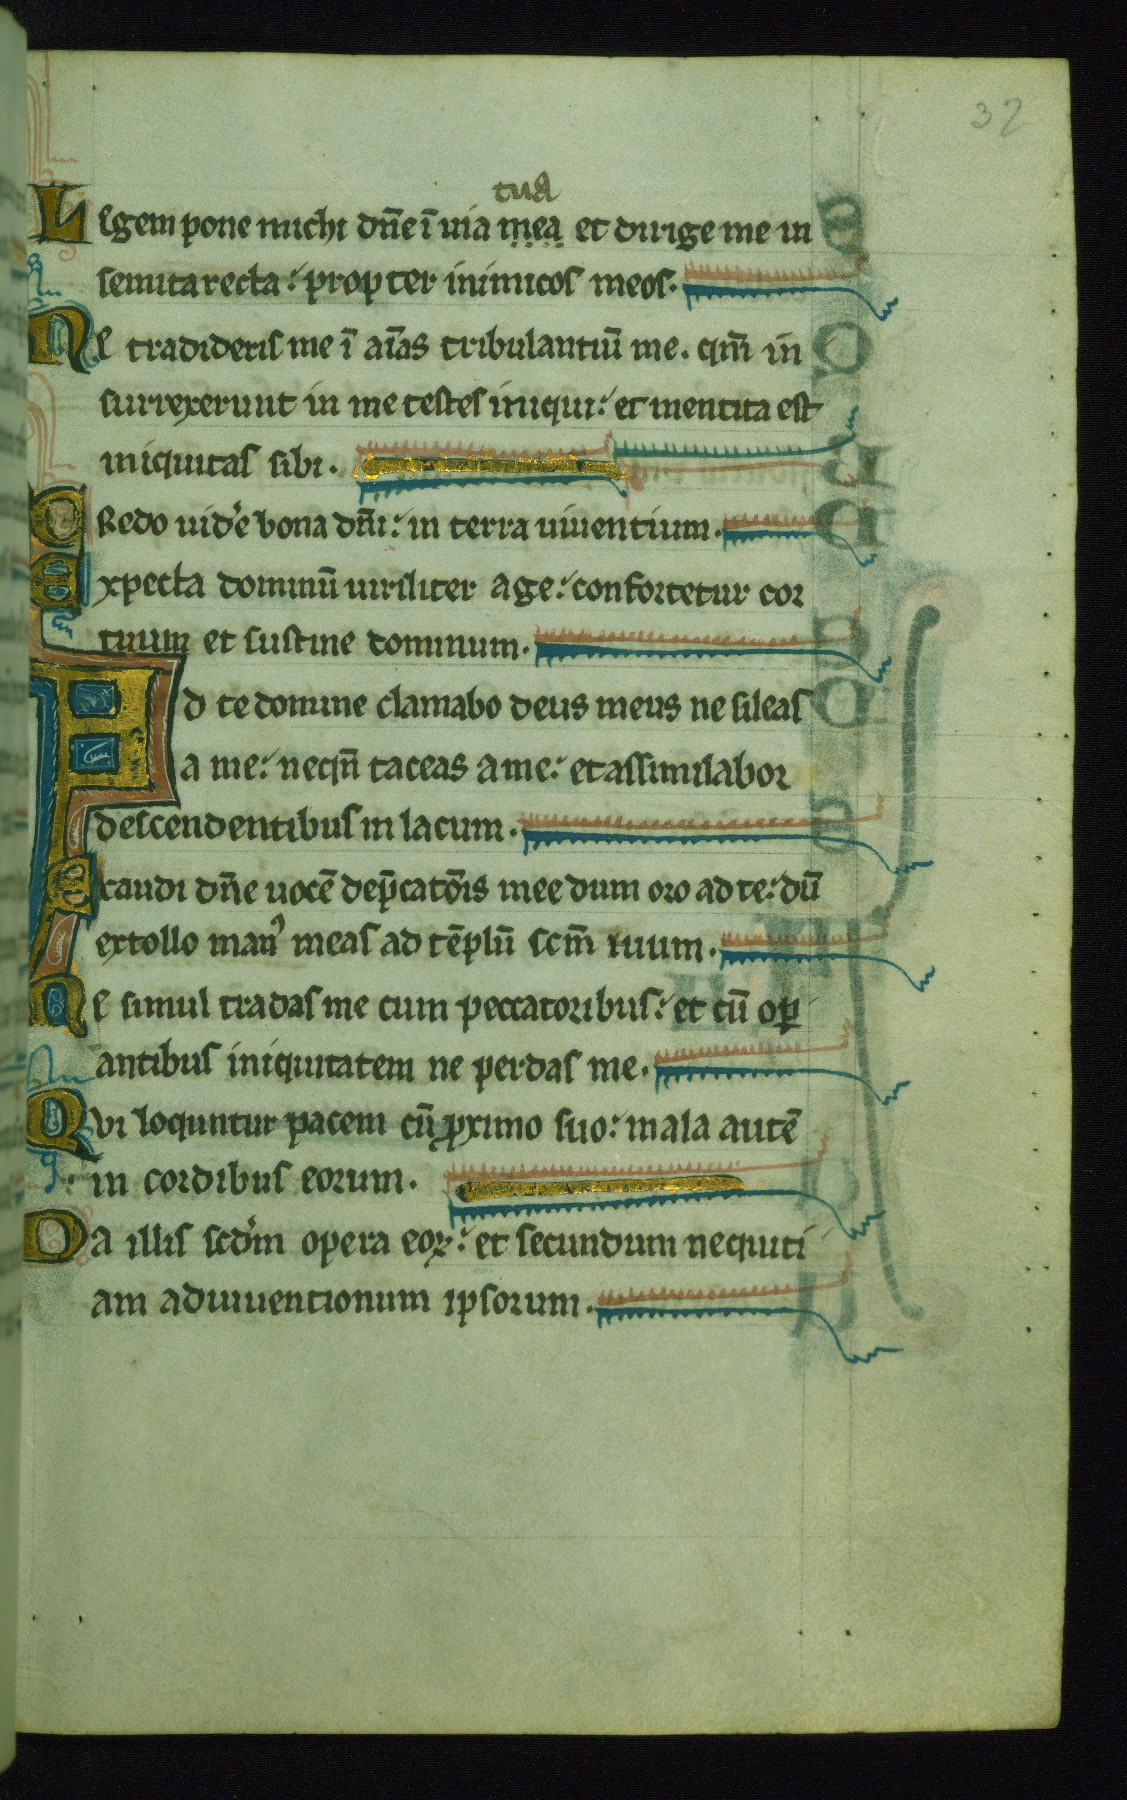 32
tua
Legem pone michi dn̄e ī uia mea et dirige me in
semita recta : propter inimicos meos.
Ne tradideris me ī aīas tribulantiū me. qm̄ in
surrexerunt in me testes iniqui : et mentita est
iniquitas sibi.
Credo uid'e bona dn̄i : in terra uiuentium.
Expecta dominū uiriliter age : confortetur cor
tuum et sustine dominum.
Ad te domine clamabo deus meus ne sileas
a me : neqn̄ taceas a me : et assimilabor
descendentibus in lacum.
Exaudi dn̄e uocē dep̄catōis mee dum oro ad te : dū
extollo man᾽ meas ad tēplū scm̄ tuum.
Ne simul tradas me cum peccatoribus : et cū oꝑ
antibus iniquitatem ne perdas me.
Qvi loquntur pacem cū ꝓximo suo : mala autē
in cordibus eorum.
Da illis scd'm opera eoꝝ : et secundum nequiti
am adinuentionum ipsorum.